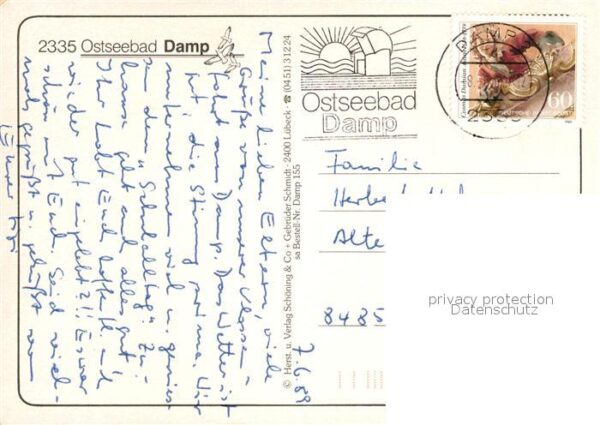 2335 Ostseebad Damp
7.6.89
Meine lieben Eltern, viele
Grüße von unserer Klassen-
fahrt aus Damp. Das Wetter ist
gut, die Stimmung prima. Wir
unternehmen viel u. genies-
sen den "Schulalltag". Zu-
hause geht auch alles gut.
Ihr habt Euch hoffentlich
wieder gut eingelebt?!! Es war
schön mit Euch. Seid viel-
mals gegrüßt u. geküßt von
Eurer
© Herst. u. Verlag Schöning & Co + Gebrüder Schmidt · 2400 Lübeck · ☎ (04 51) 3 12 24
sa Bestell-Nr. Damp 155
Ostseebad
Damp
DAMP
60
Familie
Alte
8485
privacy protection
Datenschutz